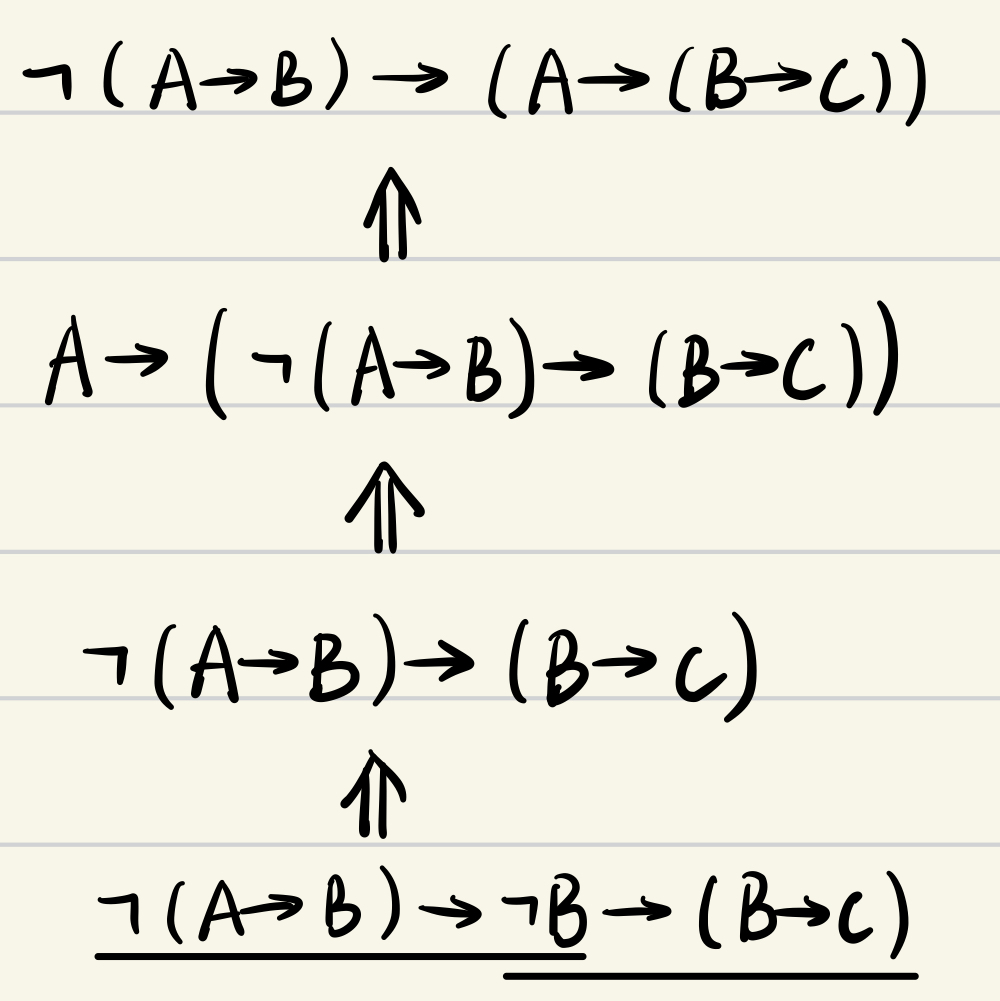 ¬(A→B)→(A→(B→C))
⇑
A→(¬(A→B)→(B→C))
⇑
¬(A→B)→(B→C)
⇑
¬(A→B)→¬B→(B→C)